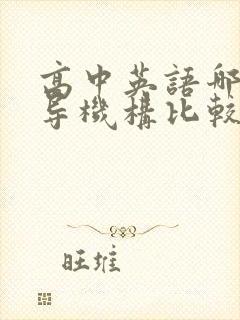 高中英語哪
导機構比較
旺堆